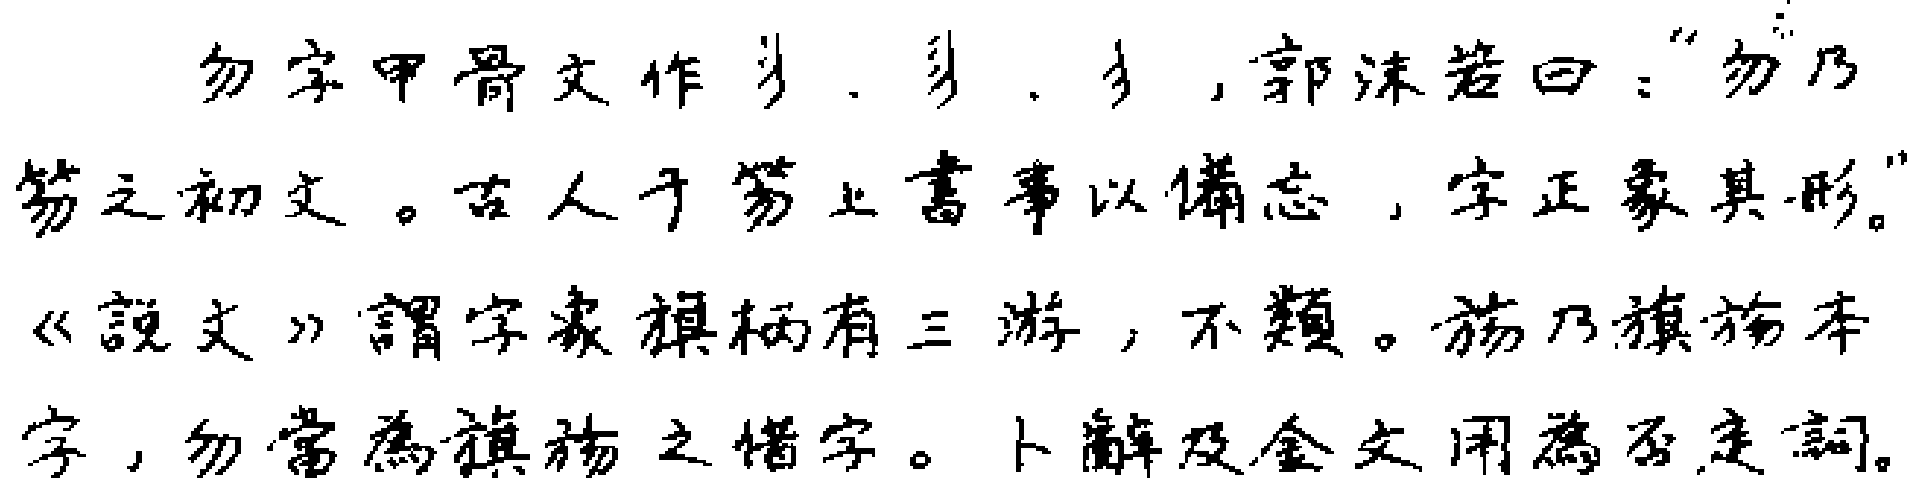 勿字甲骨文作、、，郭沫若曰："勿乃
笏之初文。古人于笏上書事以備忘，字正象其形。"
《説文》謂字象旗柄有三游，不類。㫚乃旗㫚本
字，勿當為旗㫚之借字。卜辭及金文用為否定詞。